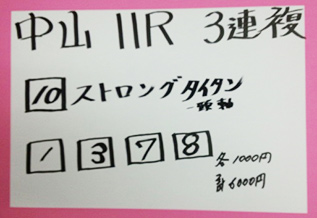 中山 11R 3連複
10 ストロングタイタン
一頭軸
1 3 7 8
各1000円
計6000円